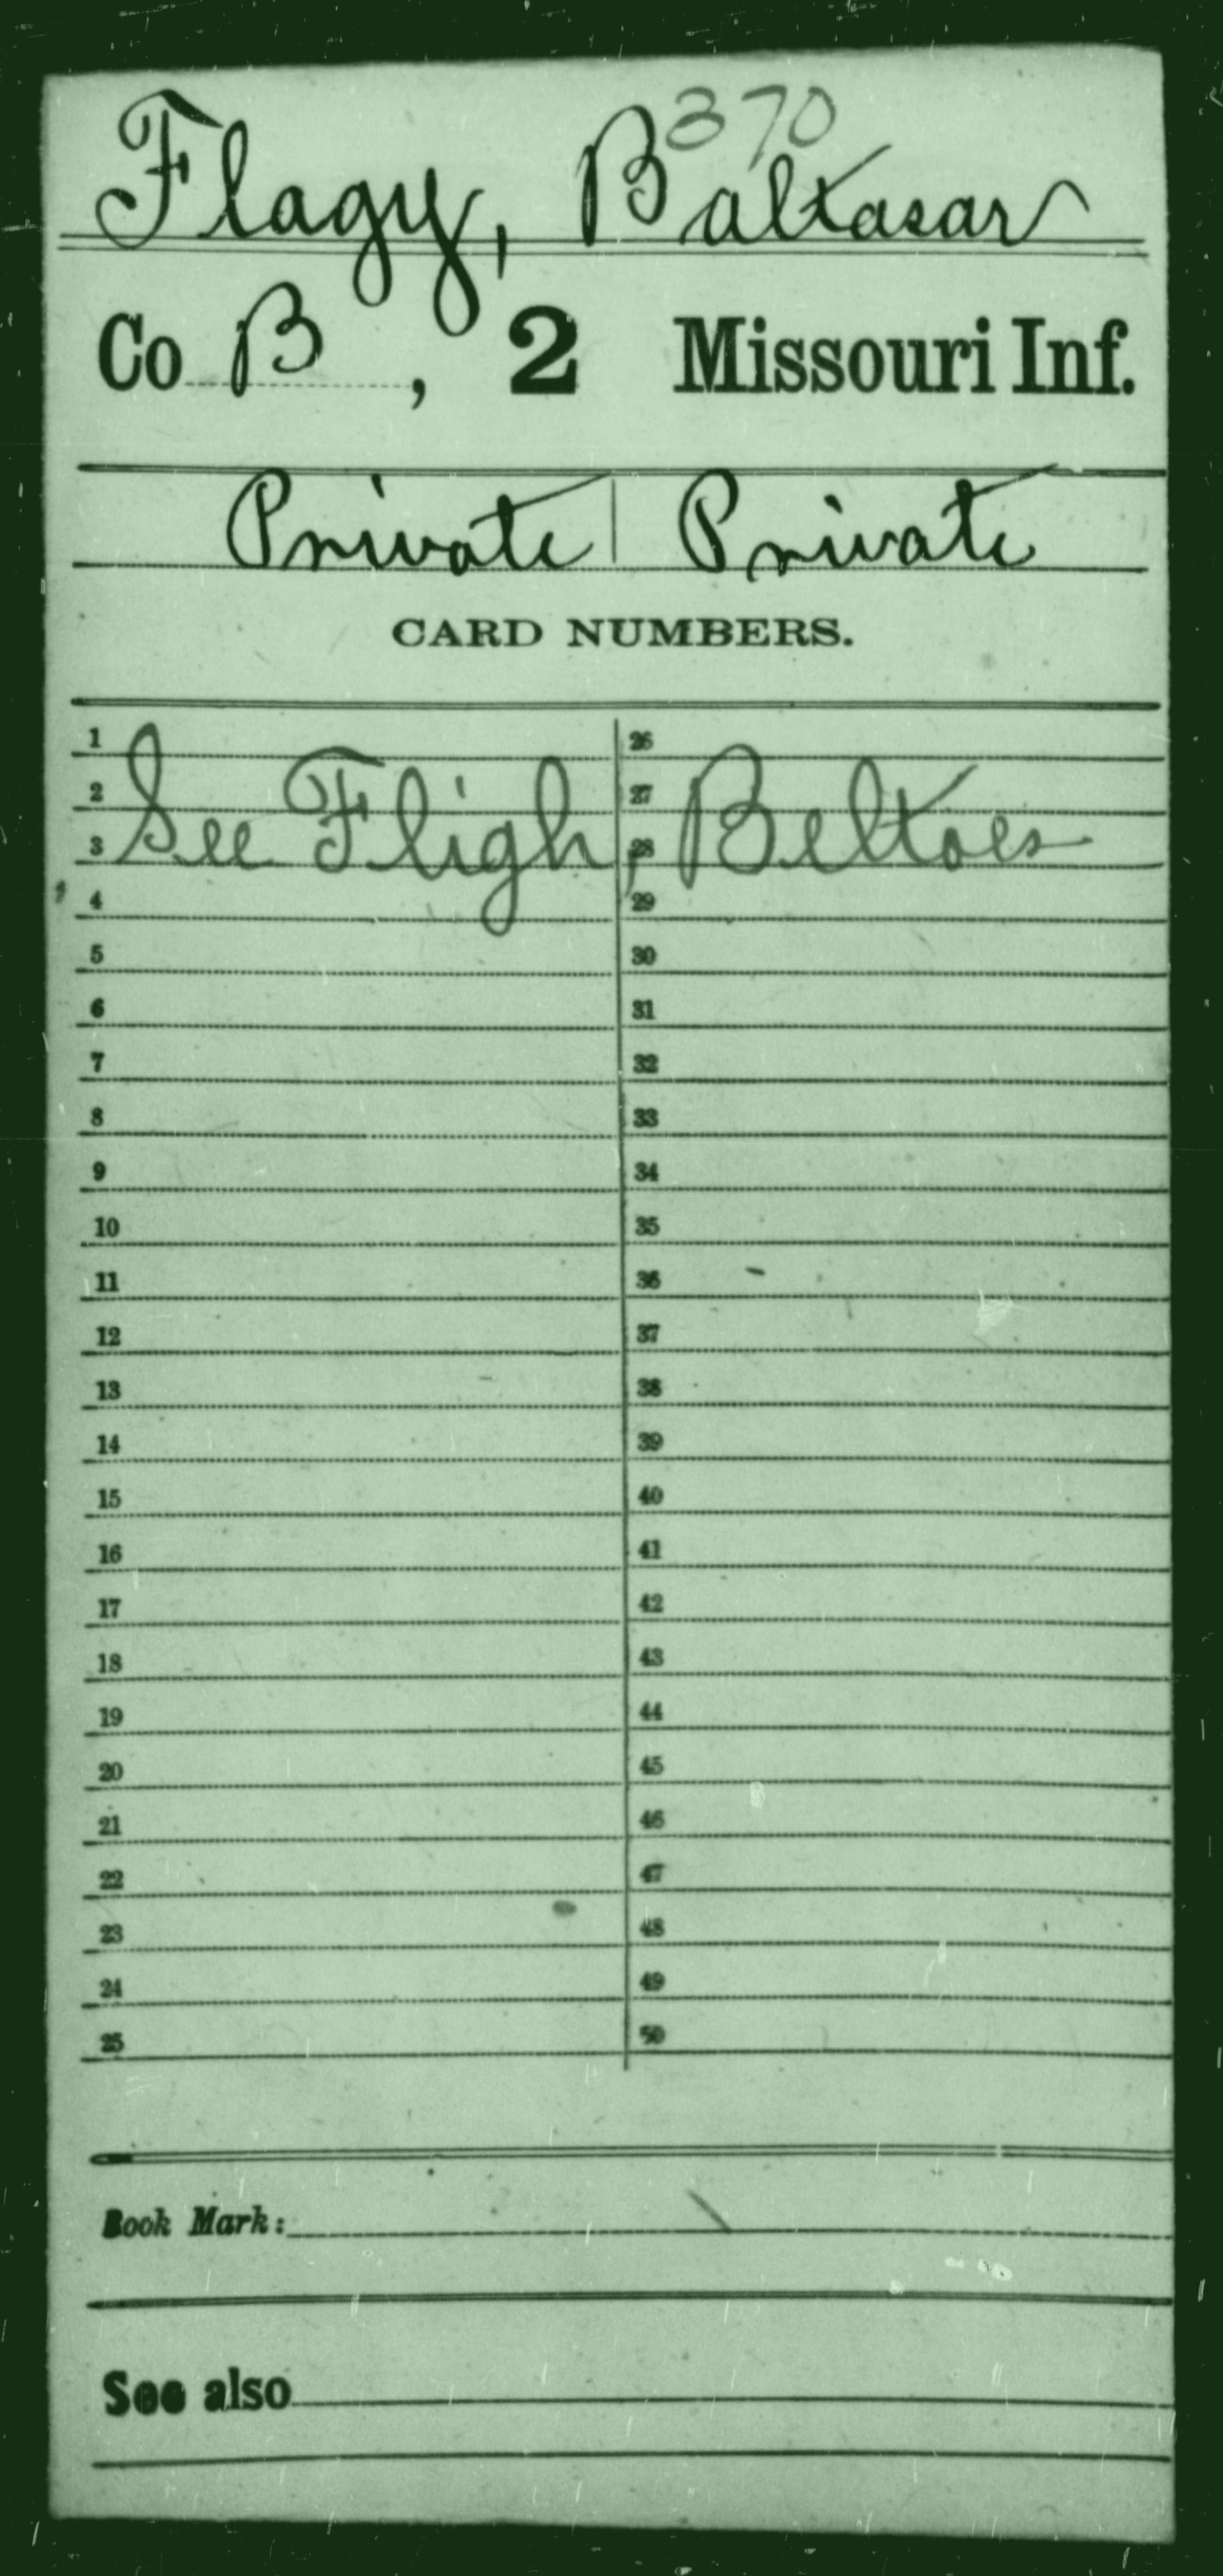 370
Flagy, Baltasar
Co B, 2 Missouri Inf.
Private | Private
CARD NUMBERS.
1 26
2 27
3 See Fligh, Beltoes 28
4 29
5 30
6 31
7 32
8 33
9 34
10 35
11 36
12 37
13 38
14 39
15 40
16 41
17 42
18 43
19 44
20 45
21 46
22 47
23 48
24 49
25 50
Book Mark:
See also